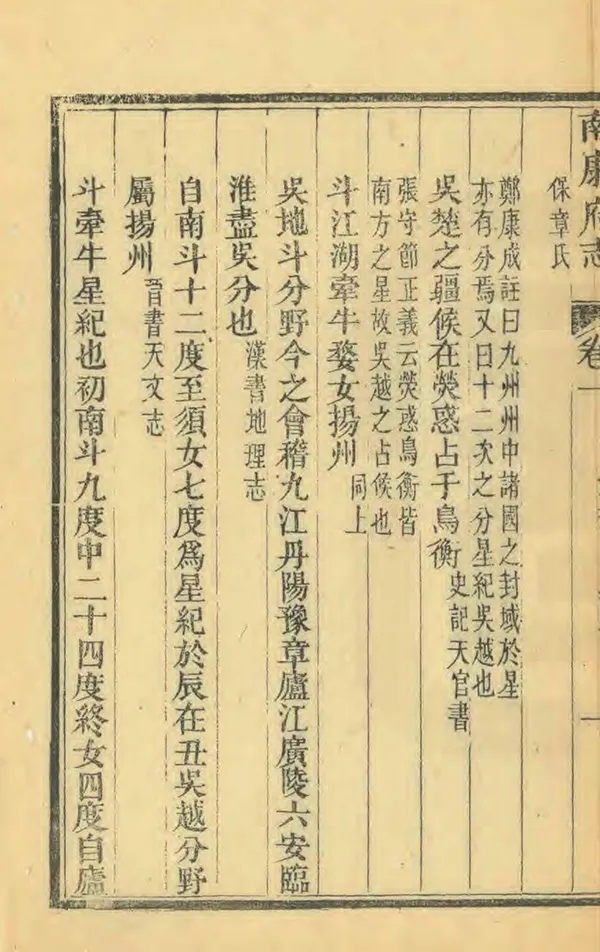 南康府志
卷一
一
保章氏
鄭康成註曰九州州中諸國之封域於星
亦有分焉又曰十二次之分星紀吳越也
吳楚之疆候在熒惑占于鳥衡史記天官書
張守節正義云熒惑鳥衡皆
南方之星故吳越之占候也
斗江湖牽牛婺女揚州同上
吳地斗分野今之會稽九江丹陽豫章廬江廣陵六安臨
淮盡吳分也漢書地理志
自南斗十二度至須女七度爲星紀於辰在丑吳越分野
屬揚州晉書天文志
斗牽牛星紀也初南斗九度中二十四度終女四度自廬